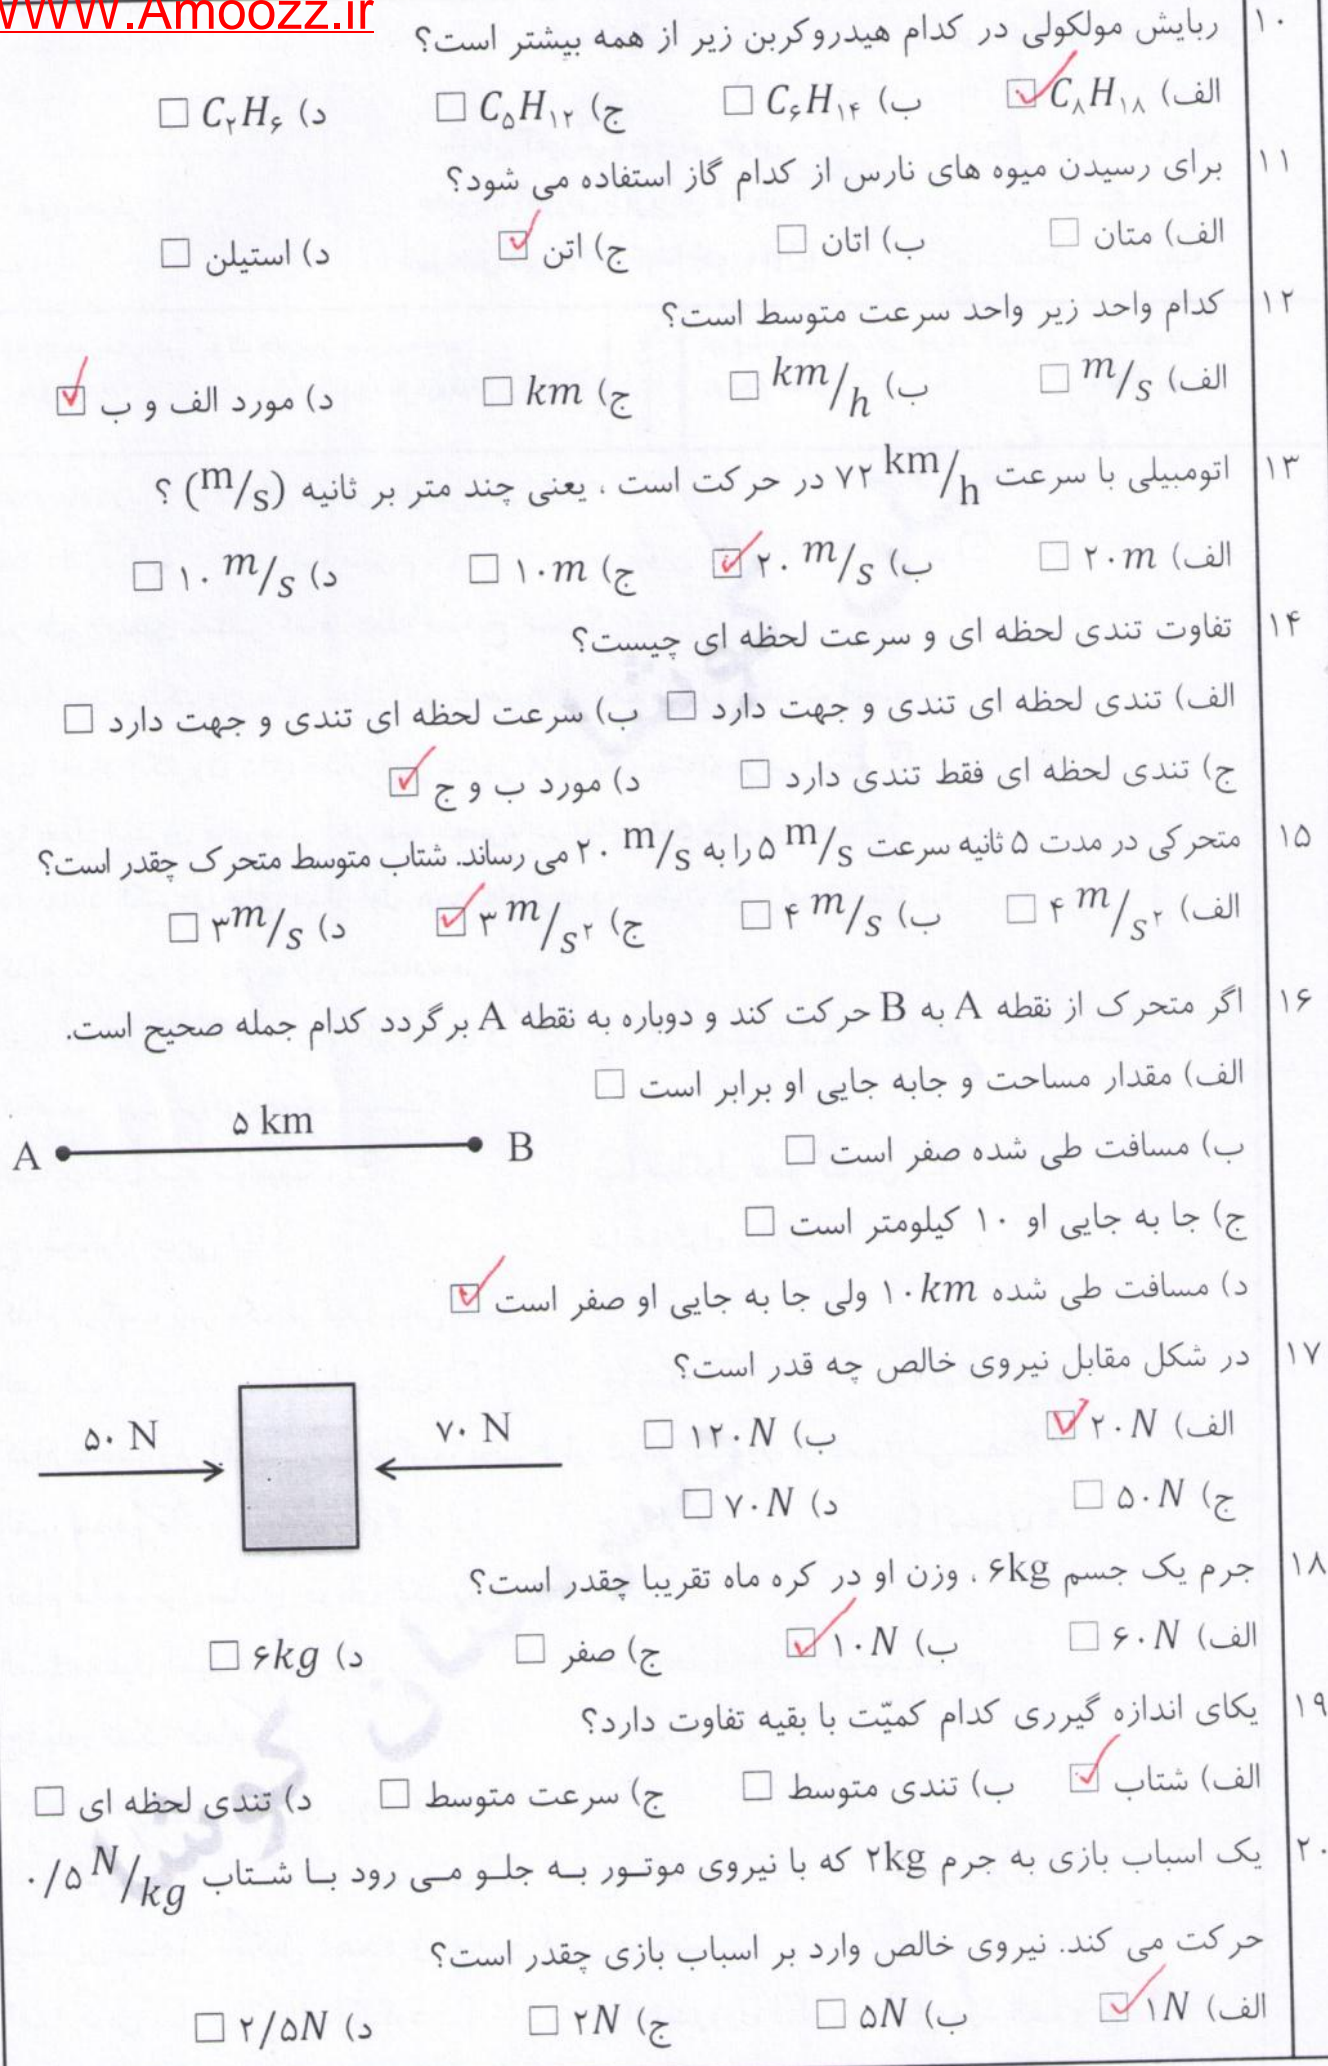 WWW.Amoozz.ir
۱۰ ربایش مولکولی در کدام هیدروکربن زیر از همه بیشتر است؟
الف) C۸H۱۸ ☑ ب) C۶H۱۴ □ ج) C۵H۱۲ □ د) C۲H۶ □
۱۱ برای رسیدن میوه های نارس از کدام گاز استفاده می شود؟
الف) متان □ ب) اتان □ ج) اتن ☑ د) استیلن □
۱۲ کدام واحد زیر واحد سرعت متوسط است؟
الف) m/s □ ب) km/h □ ج) km □ د) مورد الف و ب ☑
۱۳ اتومبیلی با سرعت ۷۲ km/h در حرکت است ، یعنی چند متر بر ثانیه (m/s) ؟
الف) ۲۰m □ ب) ۲۰ m/s ☑ ج) ۱۰m □ د) ۱۰ m/s □
۱۴ تفاوت تندی لحظه ای و سرعت لحظه ای چیست؟
الف) تندی لحظه ای تندی و جهت دارد □ ب) سرعت لحظه ای تندی و جهت دارد □
ج) تندی لحظه ای فقط تندی دارد □ د) مورد ب و ج ☑
۱۵ متحرکی در مدت ۵ ثانیه سرعت ۵ m/s را به ۲۰ m/s می رساند. شتاب متوسط متحرک چقدر است؟
الف) ۴ m/s۲ □ ب) ۴ m/s □ ج) ۳ m/s۲ ☑ د) ۳m/s □
۱۶ اگر متحرک از نقطه A به B حرکت کند و دوباره به نقطه A برگردد کدام جمله صحیح است.
الف) مقدار مساحت و جابه جایی او برابر است □
۵ km
A B
ب) مسافت طی شده صفر است □
ج) جا به جایی او ۱۰ کیلومتر است □
د) مسافت طی شده ۱۰km ولی جا به جایی او صفر است ☑
۱۷ در شکل مقابل نیروی خالص چه قدر است؟
الف) ۲۰N ☑ ب) ۱۲۰N □
۵۰ N ۷۰ N
ج) ۵۰N □ د) ۷۰N □
۱۸ جرم یک جسم ۶kg ، وزن او در کره ماه تقریبا چقدر است؟
الف) ۶۰N □ ب) ۱۰N ☑ ج) صفر □ د) ۶kg □
۱۹ یکای اندازه گیرری کدام کمیّت با بقیه تفاوت دارد؟
الف) شتاب ☑ ب) تندی متوسط □ ج) سرعت متوسط □ د) تندی لحظه ای □
۲۰ یک اسباب بازی به جرم ۲kg که با نیروی موتور به جلو می رود با شتاب ۰/۵ N/kg
حرکت می کند. نیروی خالص وارد بر اسباب بازی چقدر است؟
الف) ۱N ☑ ب) ۵N □ ج) ۲N □ د) ۲/۵N □